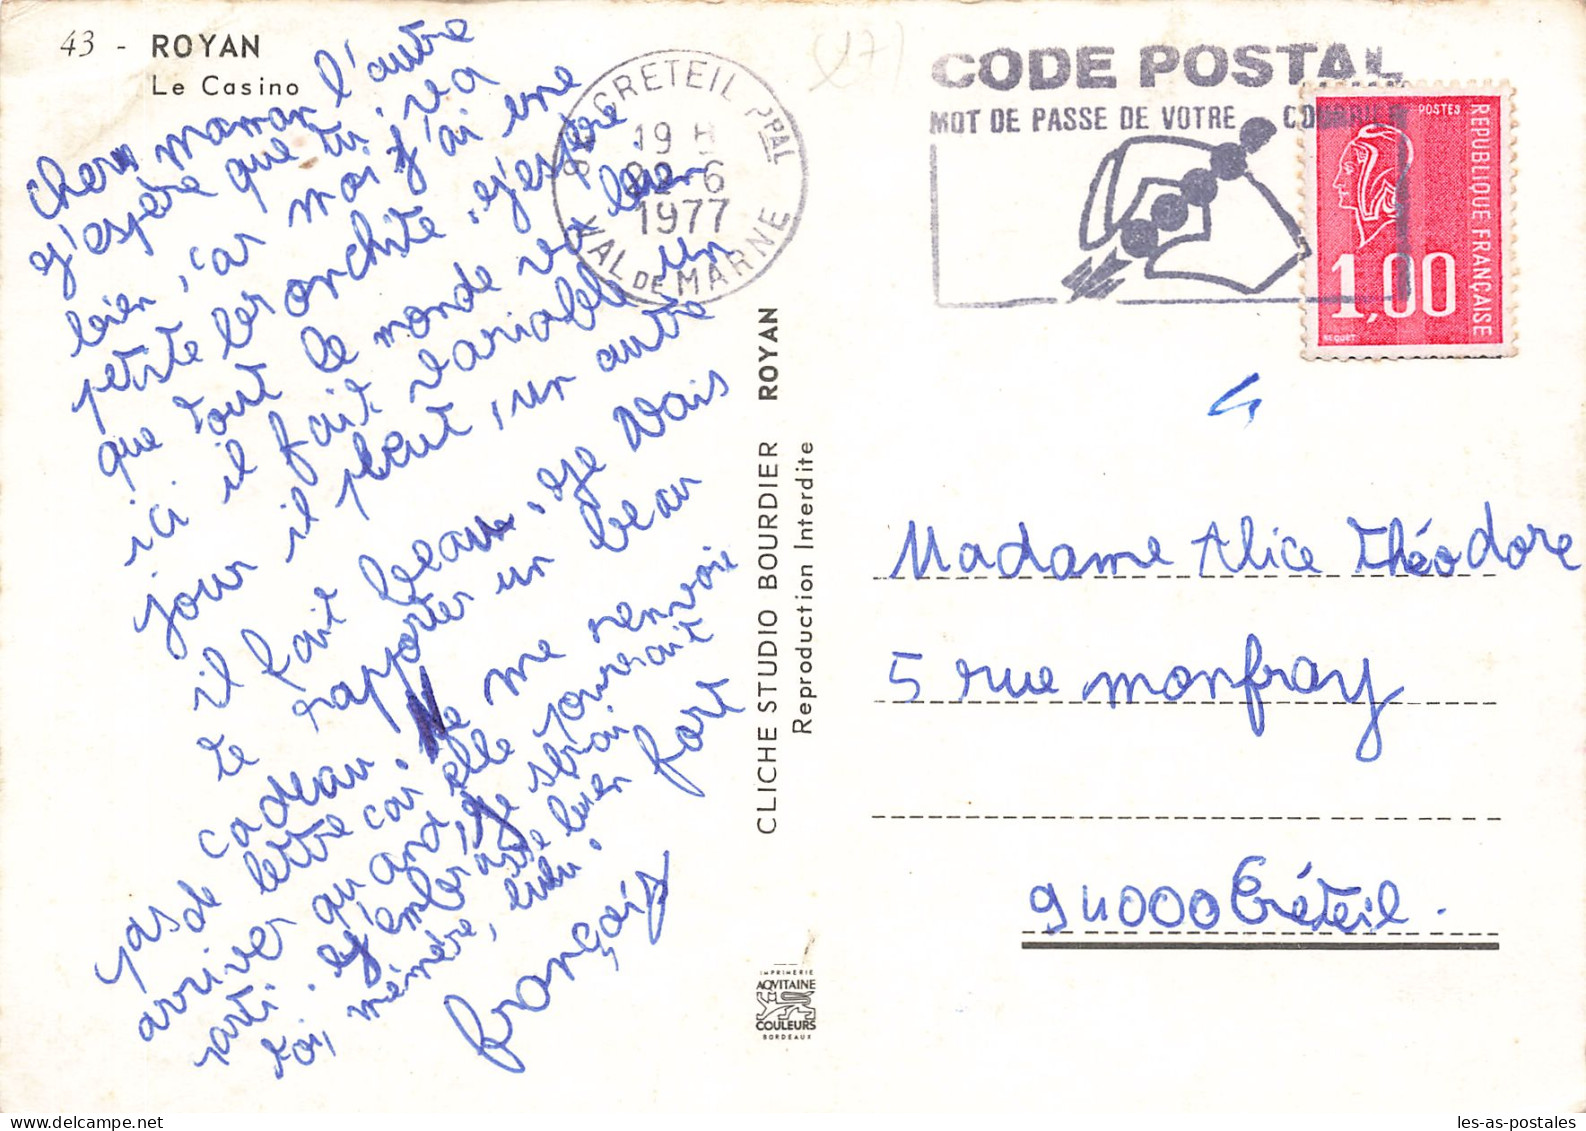 43 - ROYAN
Le Casino
chere maman l'autre
j'espère que tu, va
bien, car moi j'ai une
petite bronchite. j'espère
que tout le monde va bien
ici il fait variable un
jour il pleut, un autre
il fait beau. je vais
te rapporter un beau
cadeau. Ne me renvoie
pas de lettre car elle pourrait
arriver quand, je serai
parti. j'embrasse bien fort
toi, mémère, lulu.
françois
94 CRETEIL PPAL
19 H
22-6
1977
VAL DE MARNE
CODE POSTAL
MOT DE PASSE DE VOTRE COURRIER
POSTES
REPUBLIQUE FRANÇAISE
1,00
BEQUET
CLICHE STUDIO BOURDIER ROYAN
Reproduction Interdite
Madame Alice Théodore
5 rue monfray
94000 Créteil.
IMPRIMERIE
AQVITAINE
COULEURS
BORDEAUX
les-as-postales